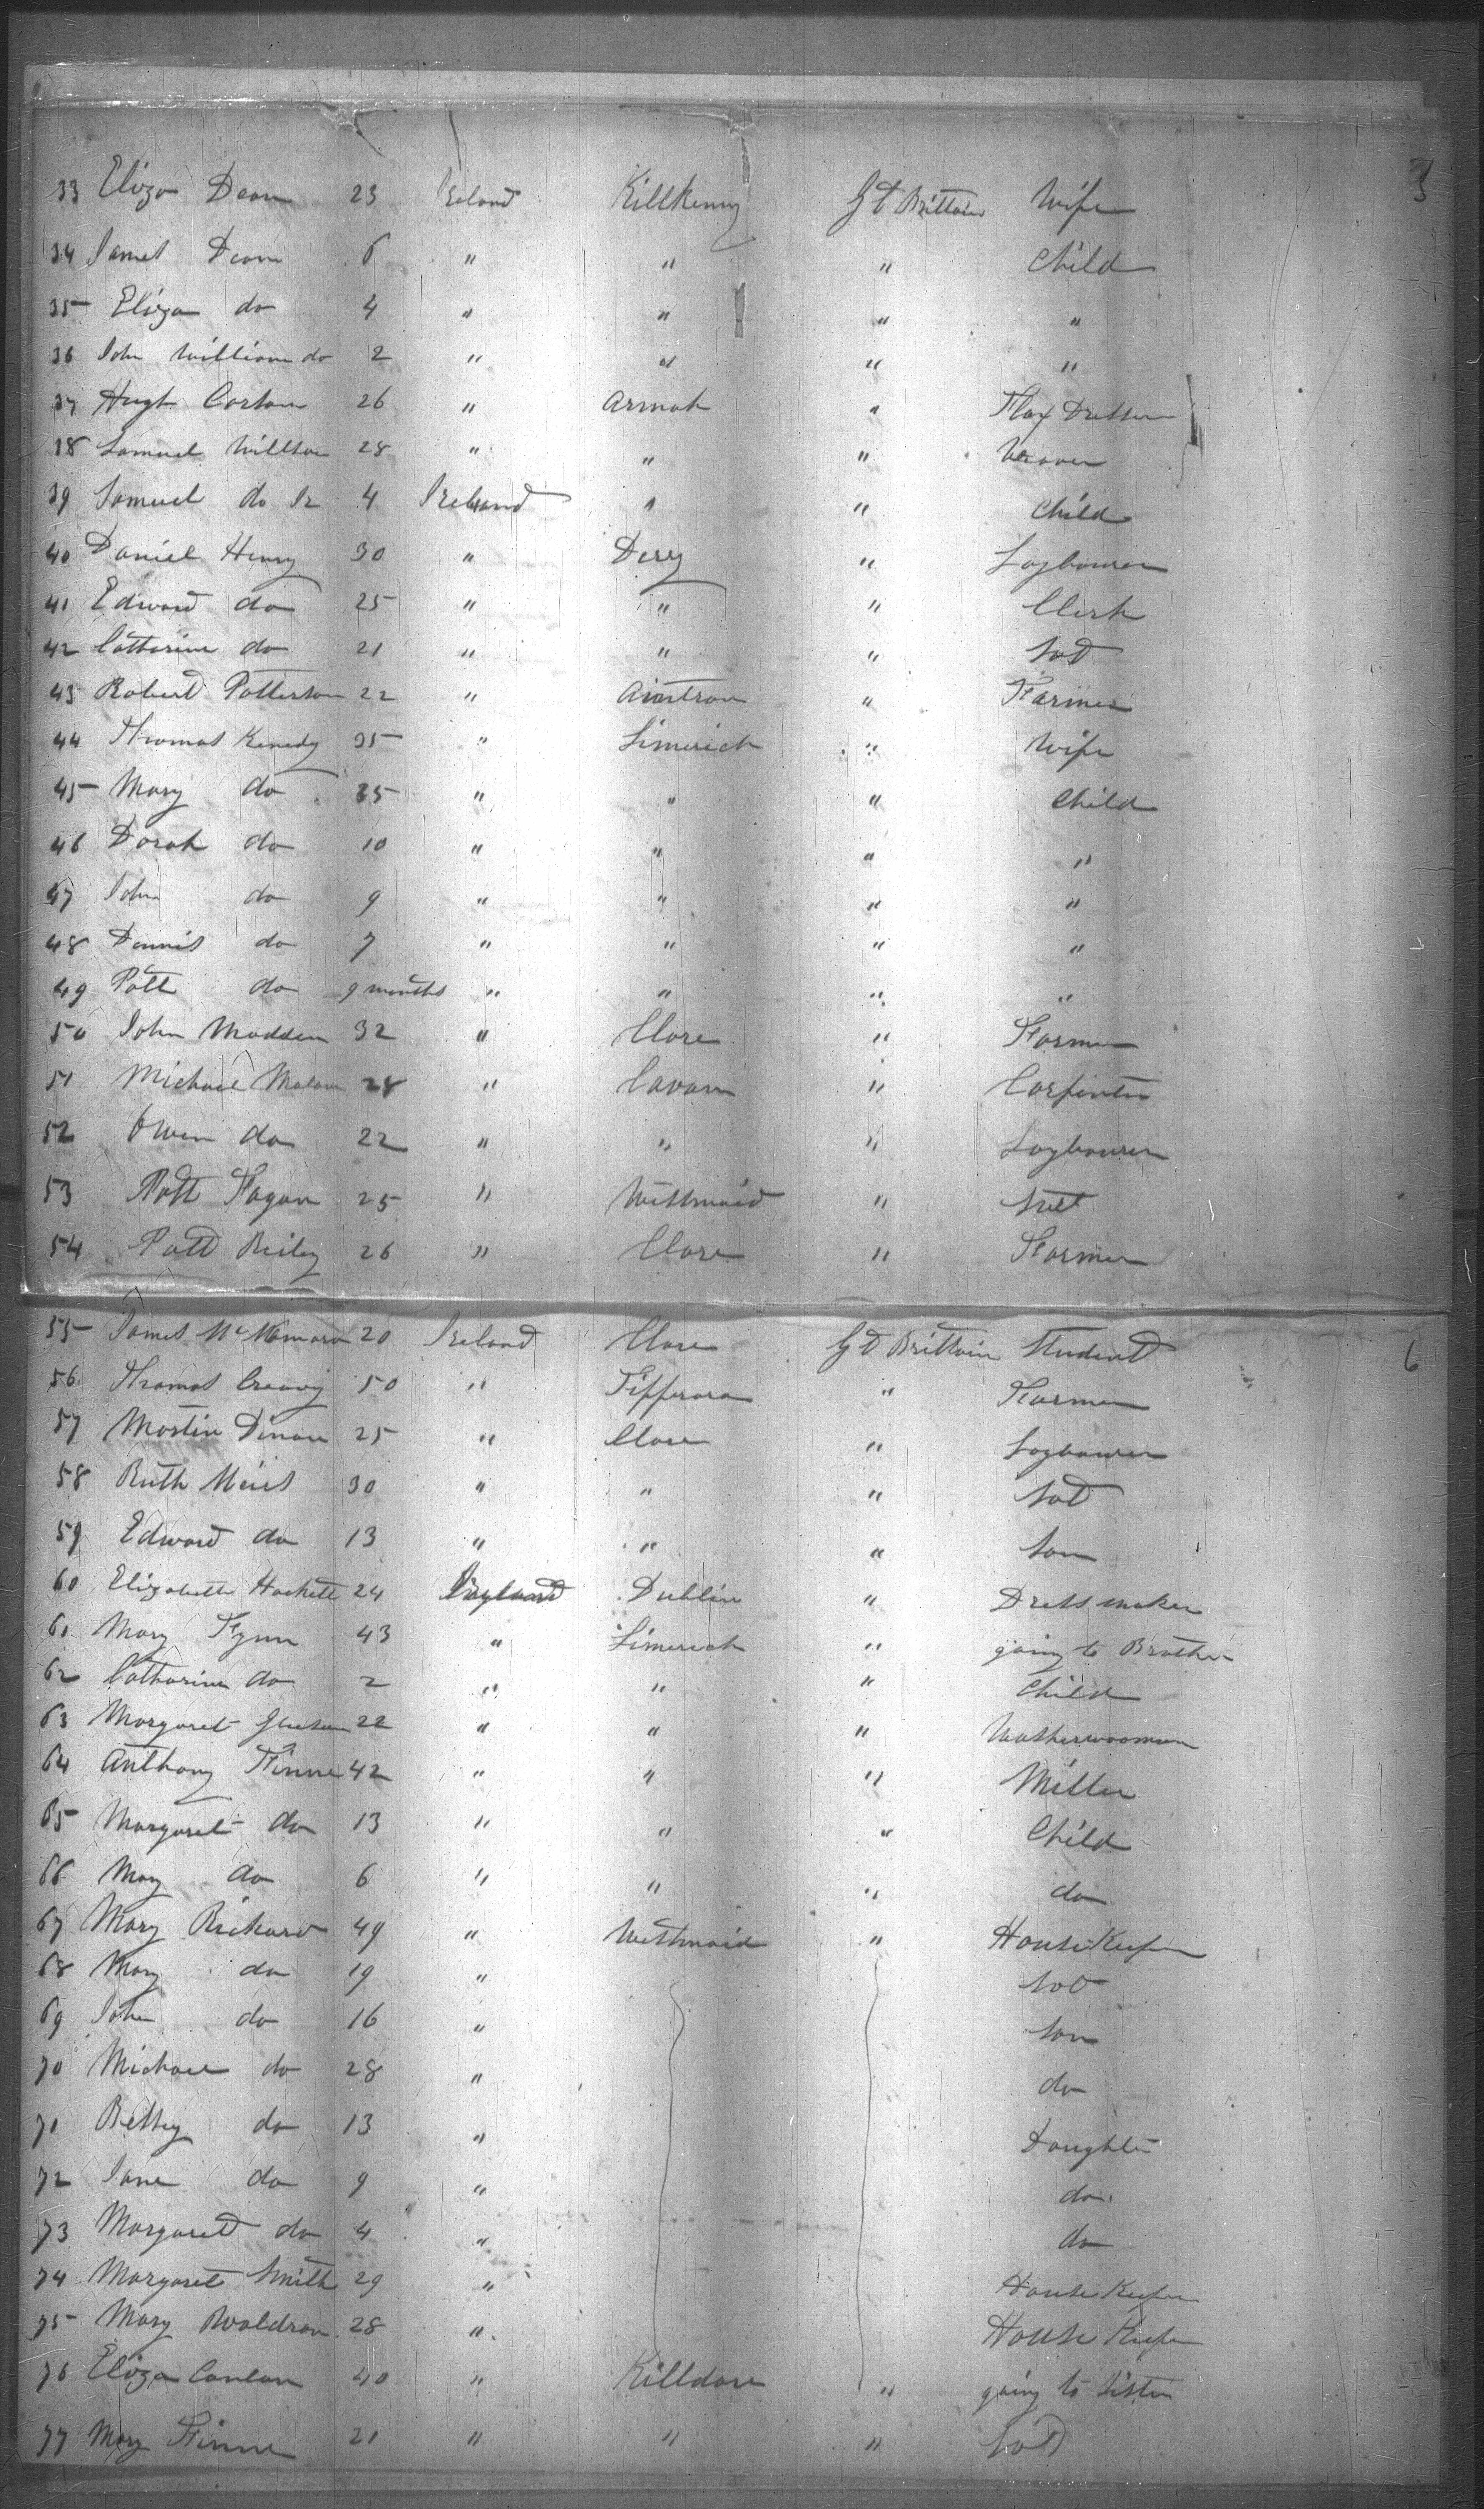 3
33 Eliza Dean 23 Ireland Killkenny Gt Brittain Wife
34 James Dean 6 " " " Child
35 Eliza do 4 " " " "
36 John William do 2 " " " "
37 Hugh Carson 26 " Armah " Flax Dresser
38 Samuel Willson 28 " " " Weaver
39 Samuel do Jr 4 Ireland " " Child
40 Daniel Henry 30 " Dery " Laybourer
41 Edward do 25 " " " Clerk
42 Catterine do 21 " " "
43 Robert Patterson 22 " Aintron " Farmer
44 Thomas Kenedy 35 " Limerick " Wife
45 Mary do 35 " " " Child
46 Dorah do 10 " " " "
47 John do 9 " " " "
48 Dennis do 7 " " " "
49 Patt do 9 months " " " "
50 John Madden 32 " Clare " Farmer
51 Michael Malone 28 " Cavan " Carpinter
52 Owen do 22 " " " Laybourer
53 Patt Fagan 25 " Westmaid "
54 Patt Reily 26 " Clare " Farmer
6
55 James McNamara 20 Ireland Clare Gt Brittain Student
56 Thomas 50 " Tipperara " Farmer
57 Martin Dinan 25 " Clare " Laybourer
58 Ruth 30 " " "
59 Edward do 13 " " " Son
60 Elizabeth Hackett 24 Dublin " Dressmaker
61 Mary Flynn 43 " Limerick " going to Brother
62 Catharine do 2 " " " Child
63 Margaret Gleeson 22 " " " Washerwooman
64 Anthony Finne 42 " " " Miller
65 Margaret do 13 " " " Child
66 May do 6 " " " do
67 Mary Rickard 49 " Westmaid " House Keeper
68 May do 19 "
69 John do 16 " Son
70 Michael do 28 " do
71 Bettsy do 13 " Daughter
72 Jane do 9 " do
73 Margaret do 4 " do
74 Margaret Smith 29 " House Keeper
75 Mary Waldron 28 " House Keeper
76 Eliza Conlan 40 " Killdare " going to Sister
77 Mary Finne 21 " " "